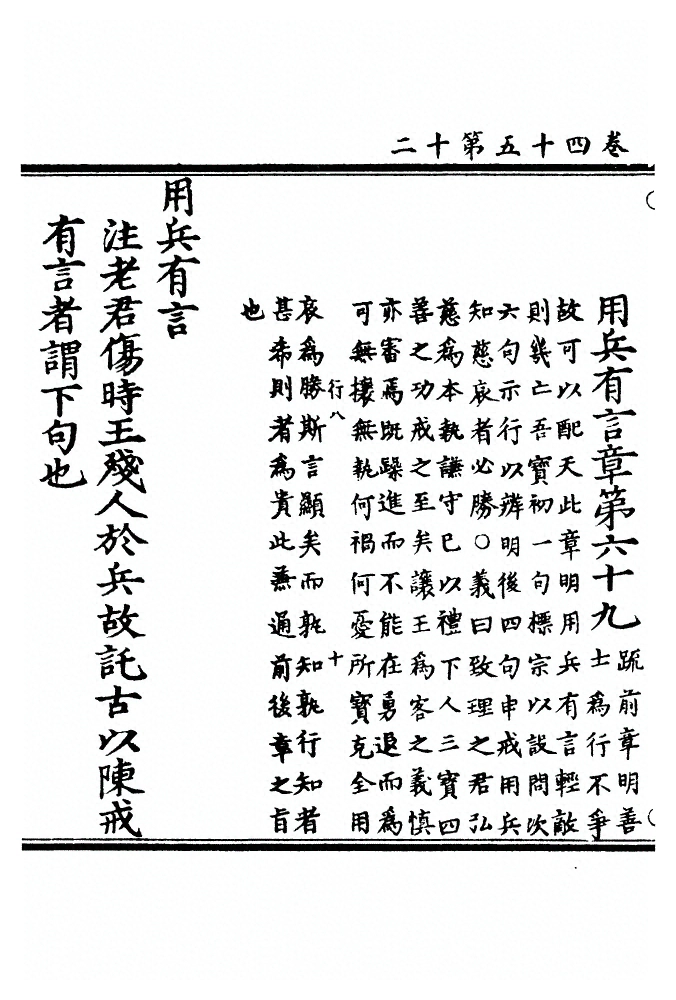 卷四十五第十二
用兵有言章第六十九
疏前章明善
士為行不爭
故可以配天此章明用兵有言輕敵
則幾亡吾寶初一句標宗以設問次
六句示行以辨明後四句申戒用兵
知慈哀者必勝○義曰致理之君弘
慈為本執謙守已以禮下人三寶四
善之功戒之至矣讓王為客之義慎
亦審焉旣躁進而不能在勇退而為
可無攘無執何禍何憂所寶克全用
行八 十
哀為勝斯言顯矣而孰知孰行知者
甚希則者為貴此兼通前後章之旨
也
用兵有言
注老君傷時王殘人於兵故託古以陳戒
有言者謂下句也